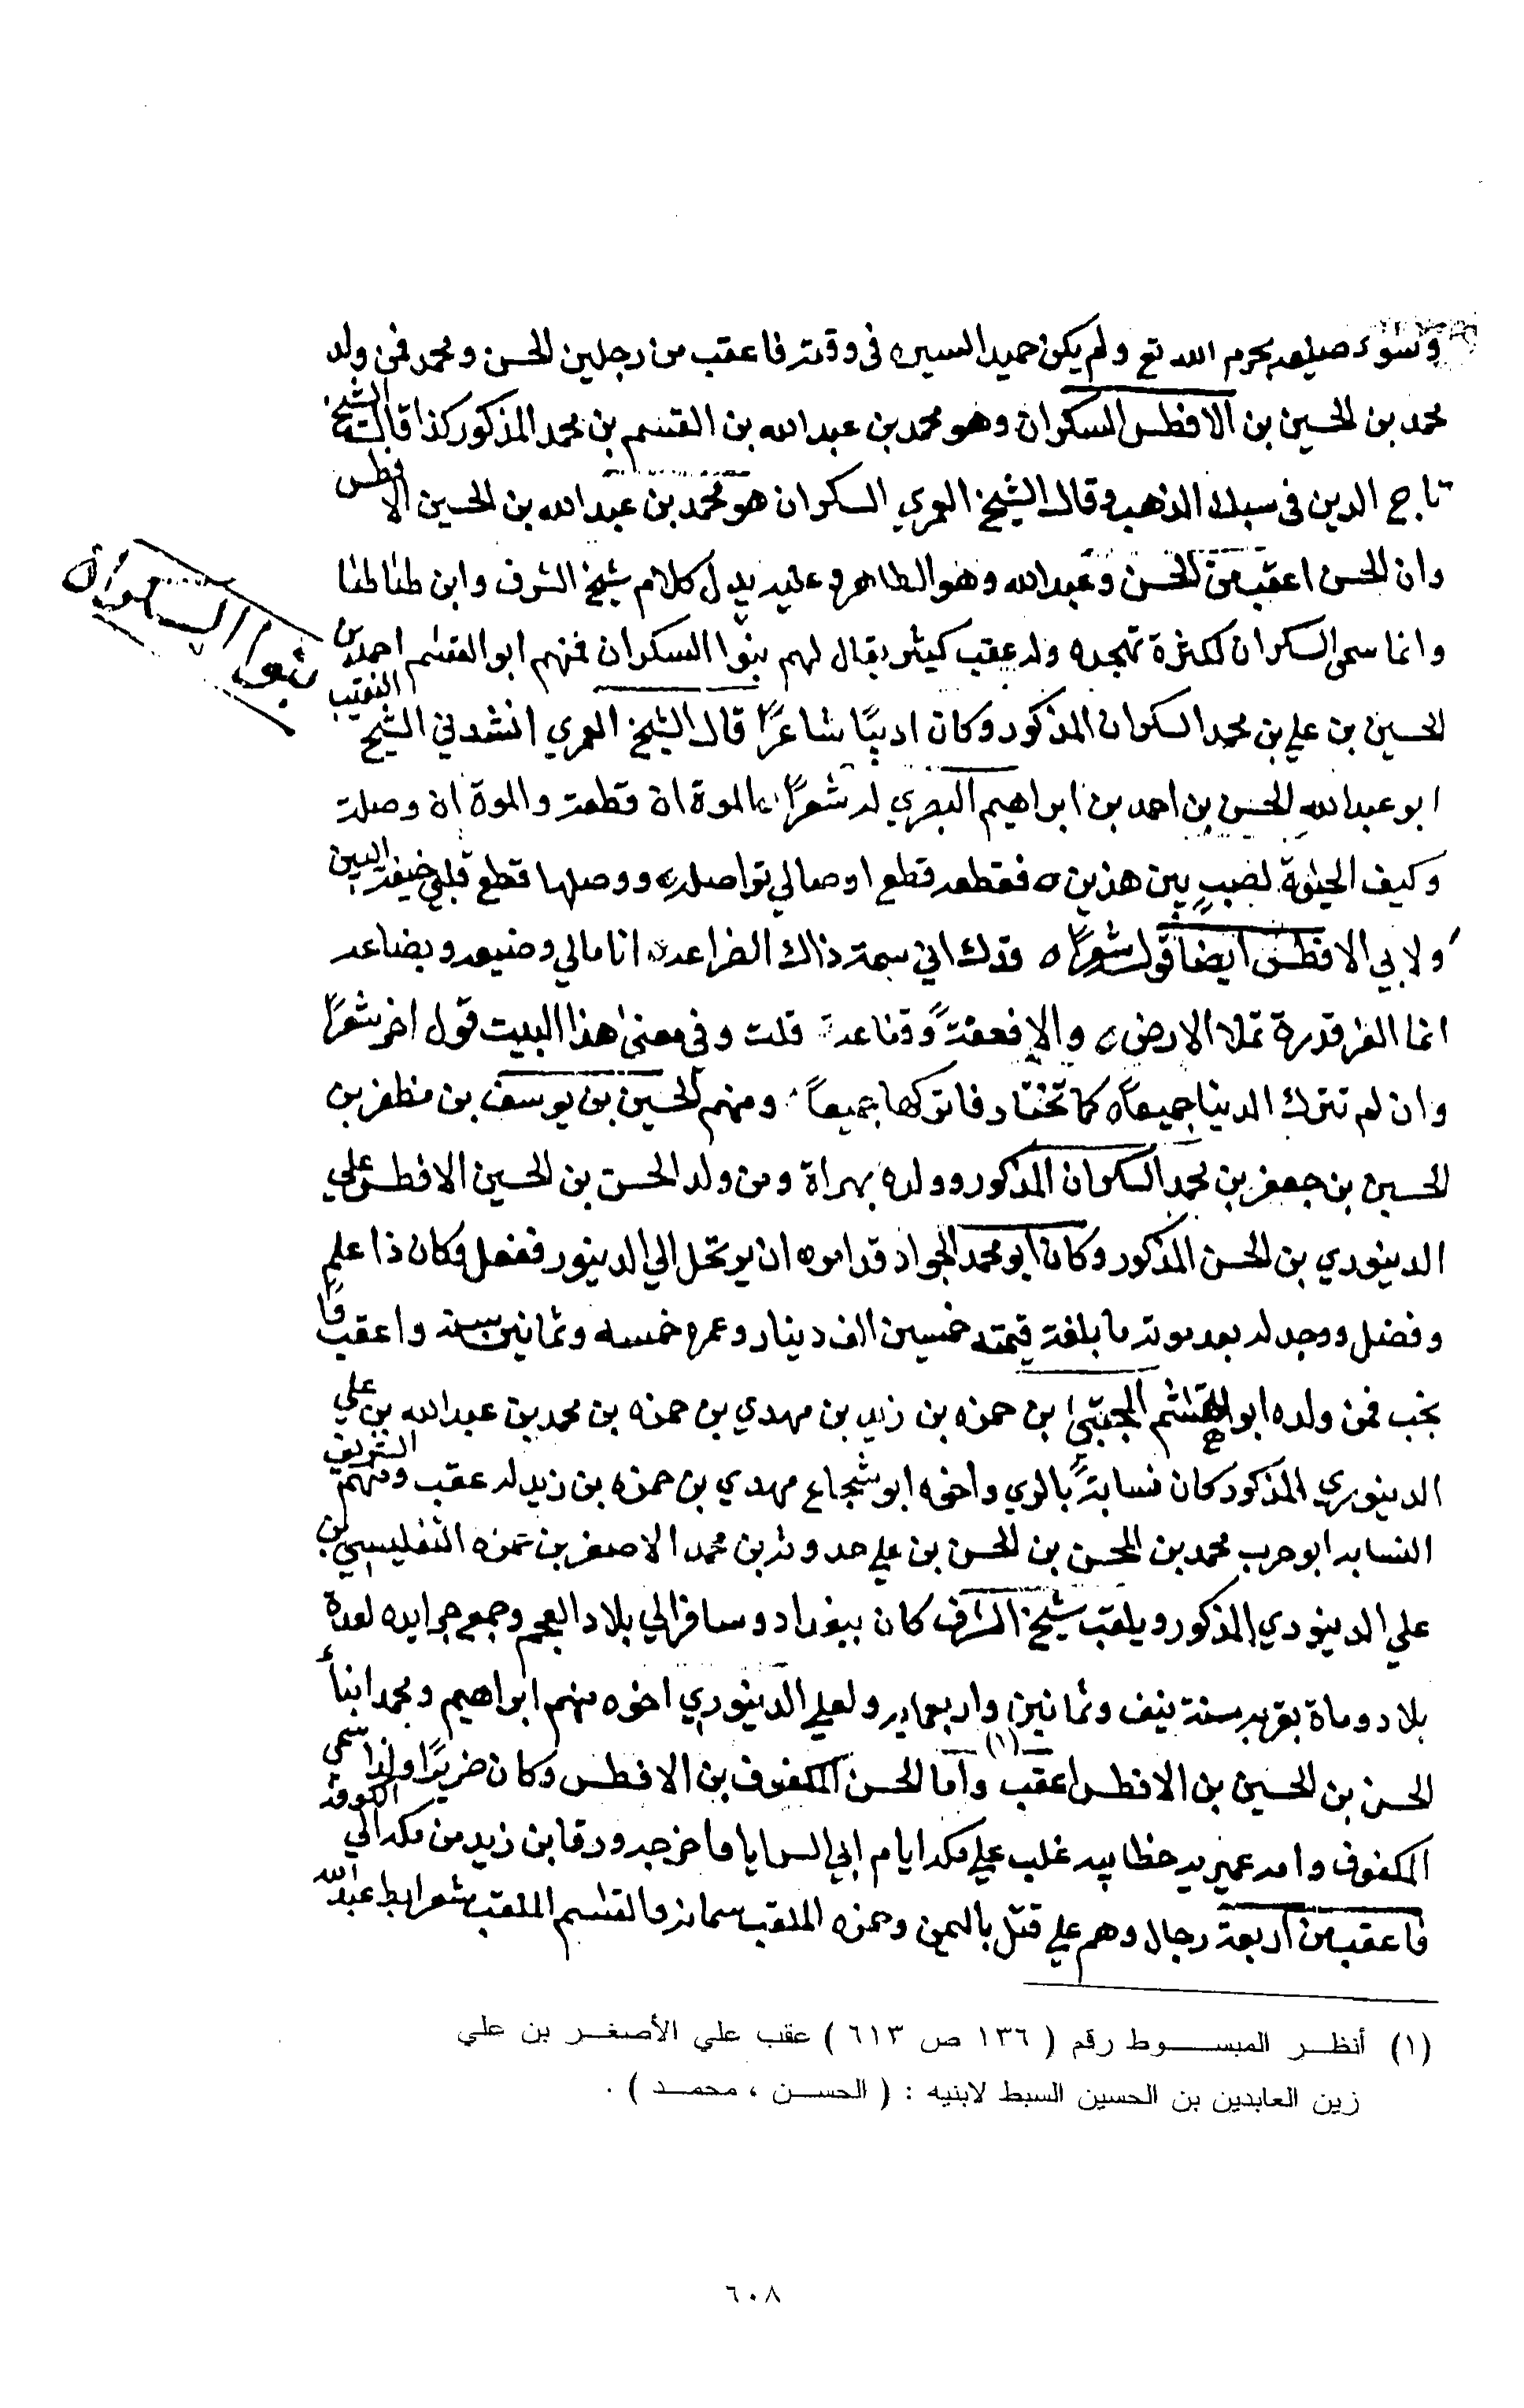 وسوء صنيعه بحرم الله تع ولم يكن حميد السيره فى وقته فاعقب من رجلين الحسن ومحمد فمن ولد
محمد بن الحسين بن الافطس السكران وهو محمد بن عبدالله بن القسم بن محمد المذكور كذا قال الشيخ
تاج الدين فى سبك الذهب وقال الشيخ العمري السكران هو محمد بن عبدالله بن الحسين الافطس
وان الحسن اعقب من الحسن وعبدالله وهو الظاهر وعليه يدل كلام شيخ الشرف وابن طباطبا
وانما سمى السكران لكثرة تهجده وله عقب كيثر يقال لهم بنوا السكران فمنهم ابو القسم احمد بن
بنوا السكران
الحسين بن علي بن محمد السكران المذكور وكان اديبًا شاعرًا قال الشيخ العمري انشدني الشيخ النقيب
ابو عبدالله الحسن بن احمد بن ابراهيم البصري له شعرًا الموة ان قطعة والموة ان وصلت
وكيف الحيوة لصب بين هذين فقطعه قطع اوصالي تواصله ووصلها قطع قلبي خيفة البين
ولابي الافطس ايضا قوله شعرًا قدك اني سمة ذاك الضراعه انا مالي وضيعه وبضاعه
انما العز قدرة تملا الارض والا فعفةً وقناعة قلت وفي معنى هذا البيت قول اخر شعرًا
وان لم تترك الدنيا جميعاً كما تختار فاتركها جميعاً ومنهم الحسين بن يوسف بن مظفر بن
الحسين بن جعفر بن محمد السكران المذكور وولده بهراة ومن ولد الحسن بن الحسين الافطس علي
الدينوري بن الحسن المذكور وكان ابو محمد الجواد قد امره ان يرتحل الي الدينور ففعل وكان ذا علم
وفضل ووجد له بعد موته ما بلغة قيمته خمسين الف دينار وعمره خمسه وثمانين سنه واعقب فا
نجب فمن ولده ابو هاشم المجتبى بن حمزه بن زيد بن مهدي بن حمزه بن محمد بن عبدالله بن علي
الدينوري المذكور كان نسابةً بالري واخوه ابو شجاع مهدي بن حمزه بن زيد له عقب ومنهم الشريف
النسابه ابو حرب محمد بن المحسن بن الحسن بن علي حدوثه بن محمد الاصغر بن حمزه التفليسي بن
علي الدينوري المذكور ويلقب شيخ الشرف كان ببغداد وسافر الي بلاد العجم وجمع جرايده لعدة
بلاد وماة بغزنه سنة نيف وثمانين واربعمايه ولعلي الدينوري اخوه منهم ابراهيم ومحمد ابناء
الحسن بن الحسين بن الافطس اعقب (١) واما الحسن المكفوف بن الافطس وكان ضريرًا ولذا سمي
المكفوف وامه عميريه خطابيه غلب علي مكه ايام ابي السرايا فاخرجه ورقا بن زيد من مكه الي الكوفه
فاعقب من اربعة رجال وهم علي قتل باليمن وحمزه الملقب سمانه والقسم الملقب شعرابط عبدالله
(١) أنظر المبسوط رقم ( ١٣٦ ص ٦١٣ ) عقب علي الأصغر بن علي
زين العابدين بن الحسين السبط لابنيه : ( الحسن ، محمد ) .
٦٠٨